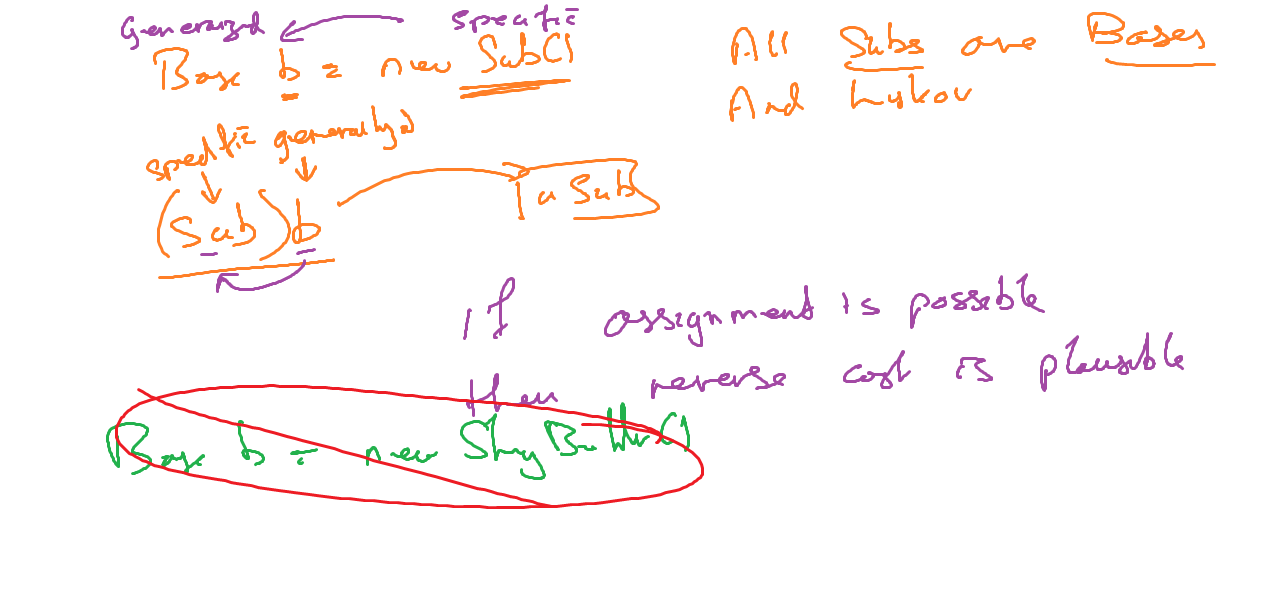 Generalized specific
Base b = new SubC()
All Subs are Bases
And Liskov
specific generalized
(Sub)b
a Sub
if assignment is possible
then reverse cast is plausible
Base b = new StringBuilder()